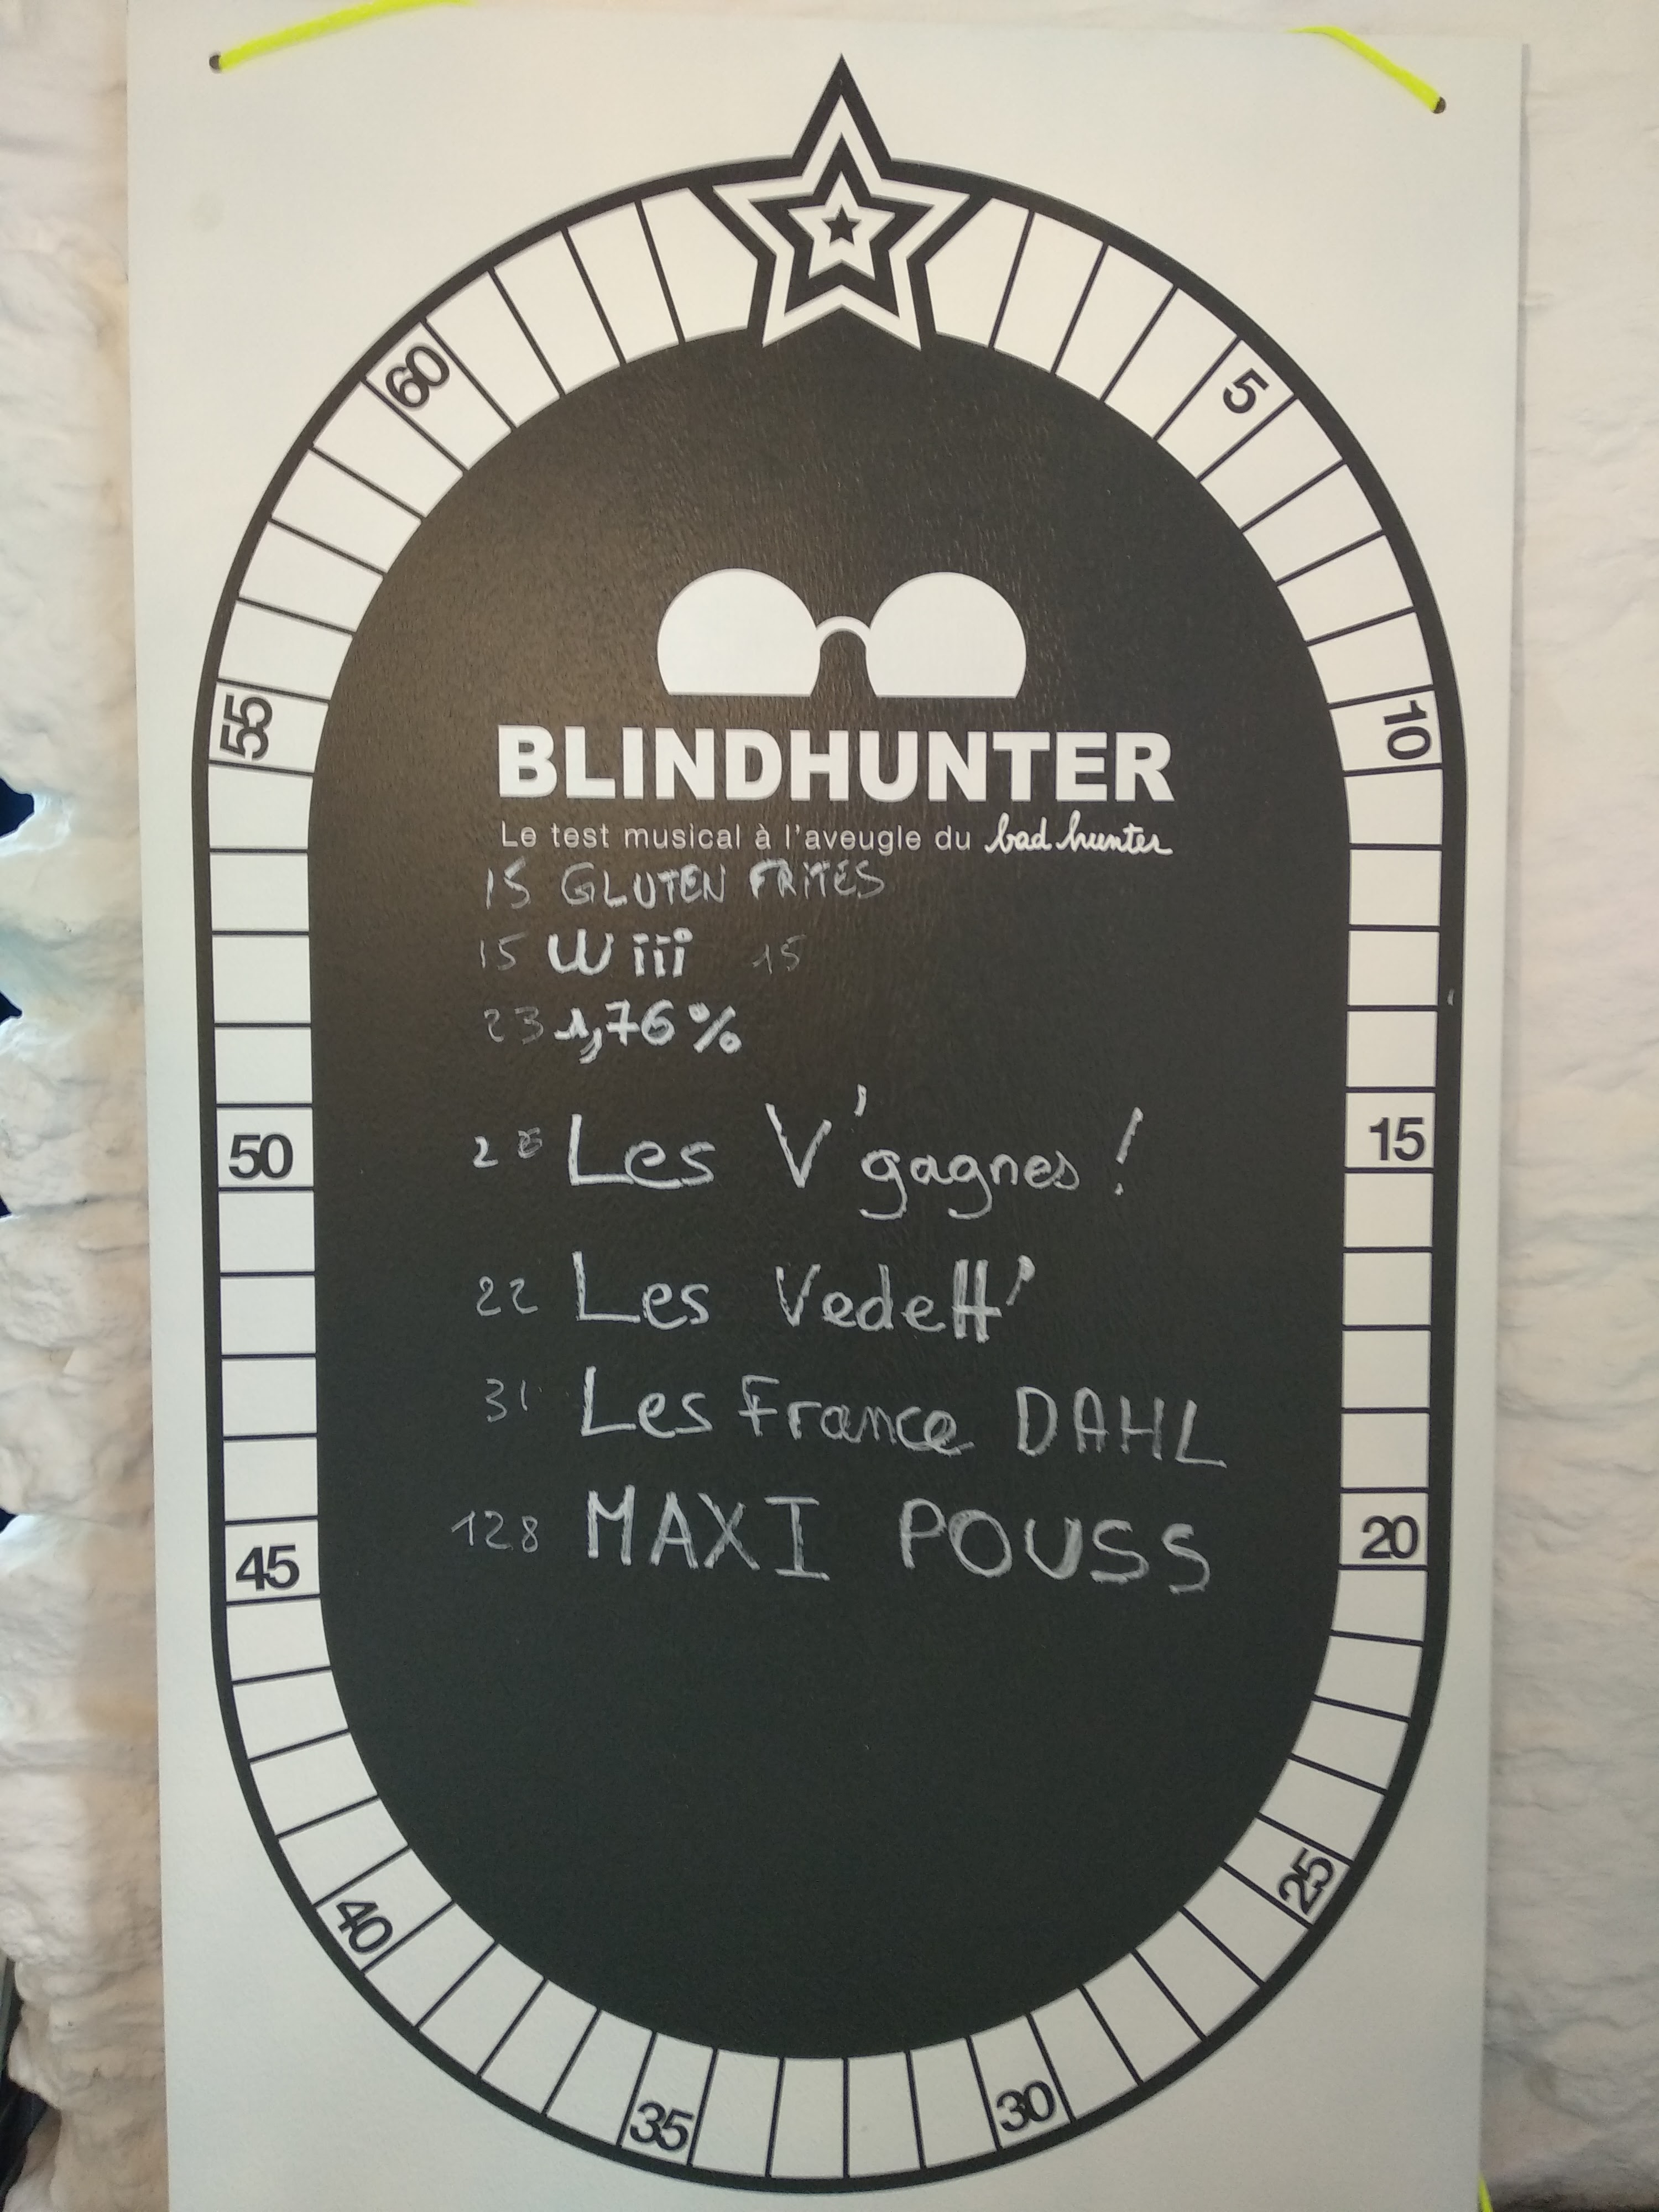 5
10
15
20
25
30
35
40
45
50
55
60
BLINDHUNTER
Le test musical à l'aveugle du bad hunter
15 GLUTEN FRITES
15 Wiii 15
23 1,76%
Les V'gagnes !
22 Les Vedett'
31 Les France DAHL
128 MAXI POUSS